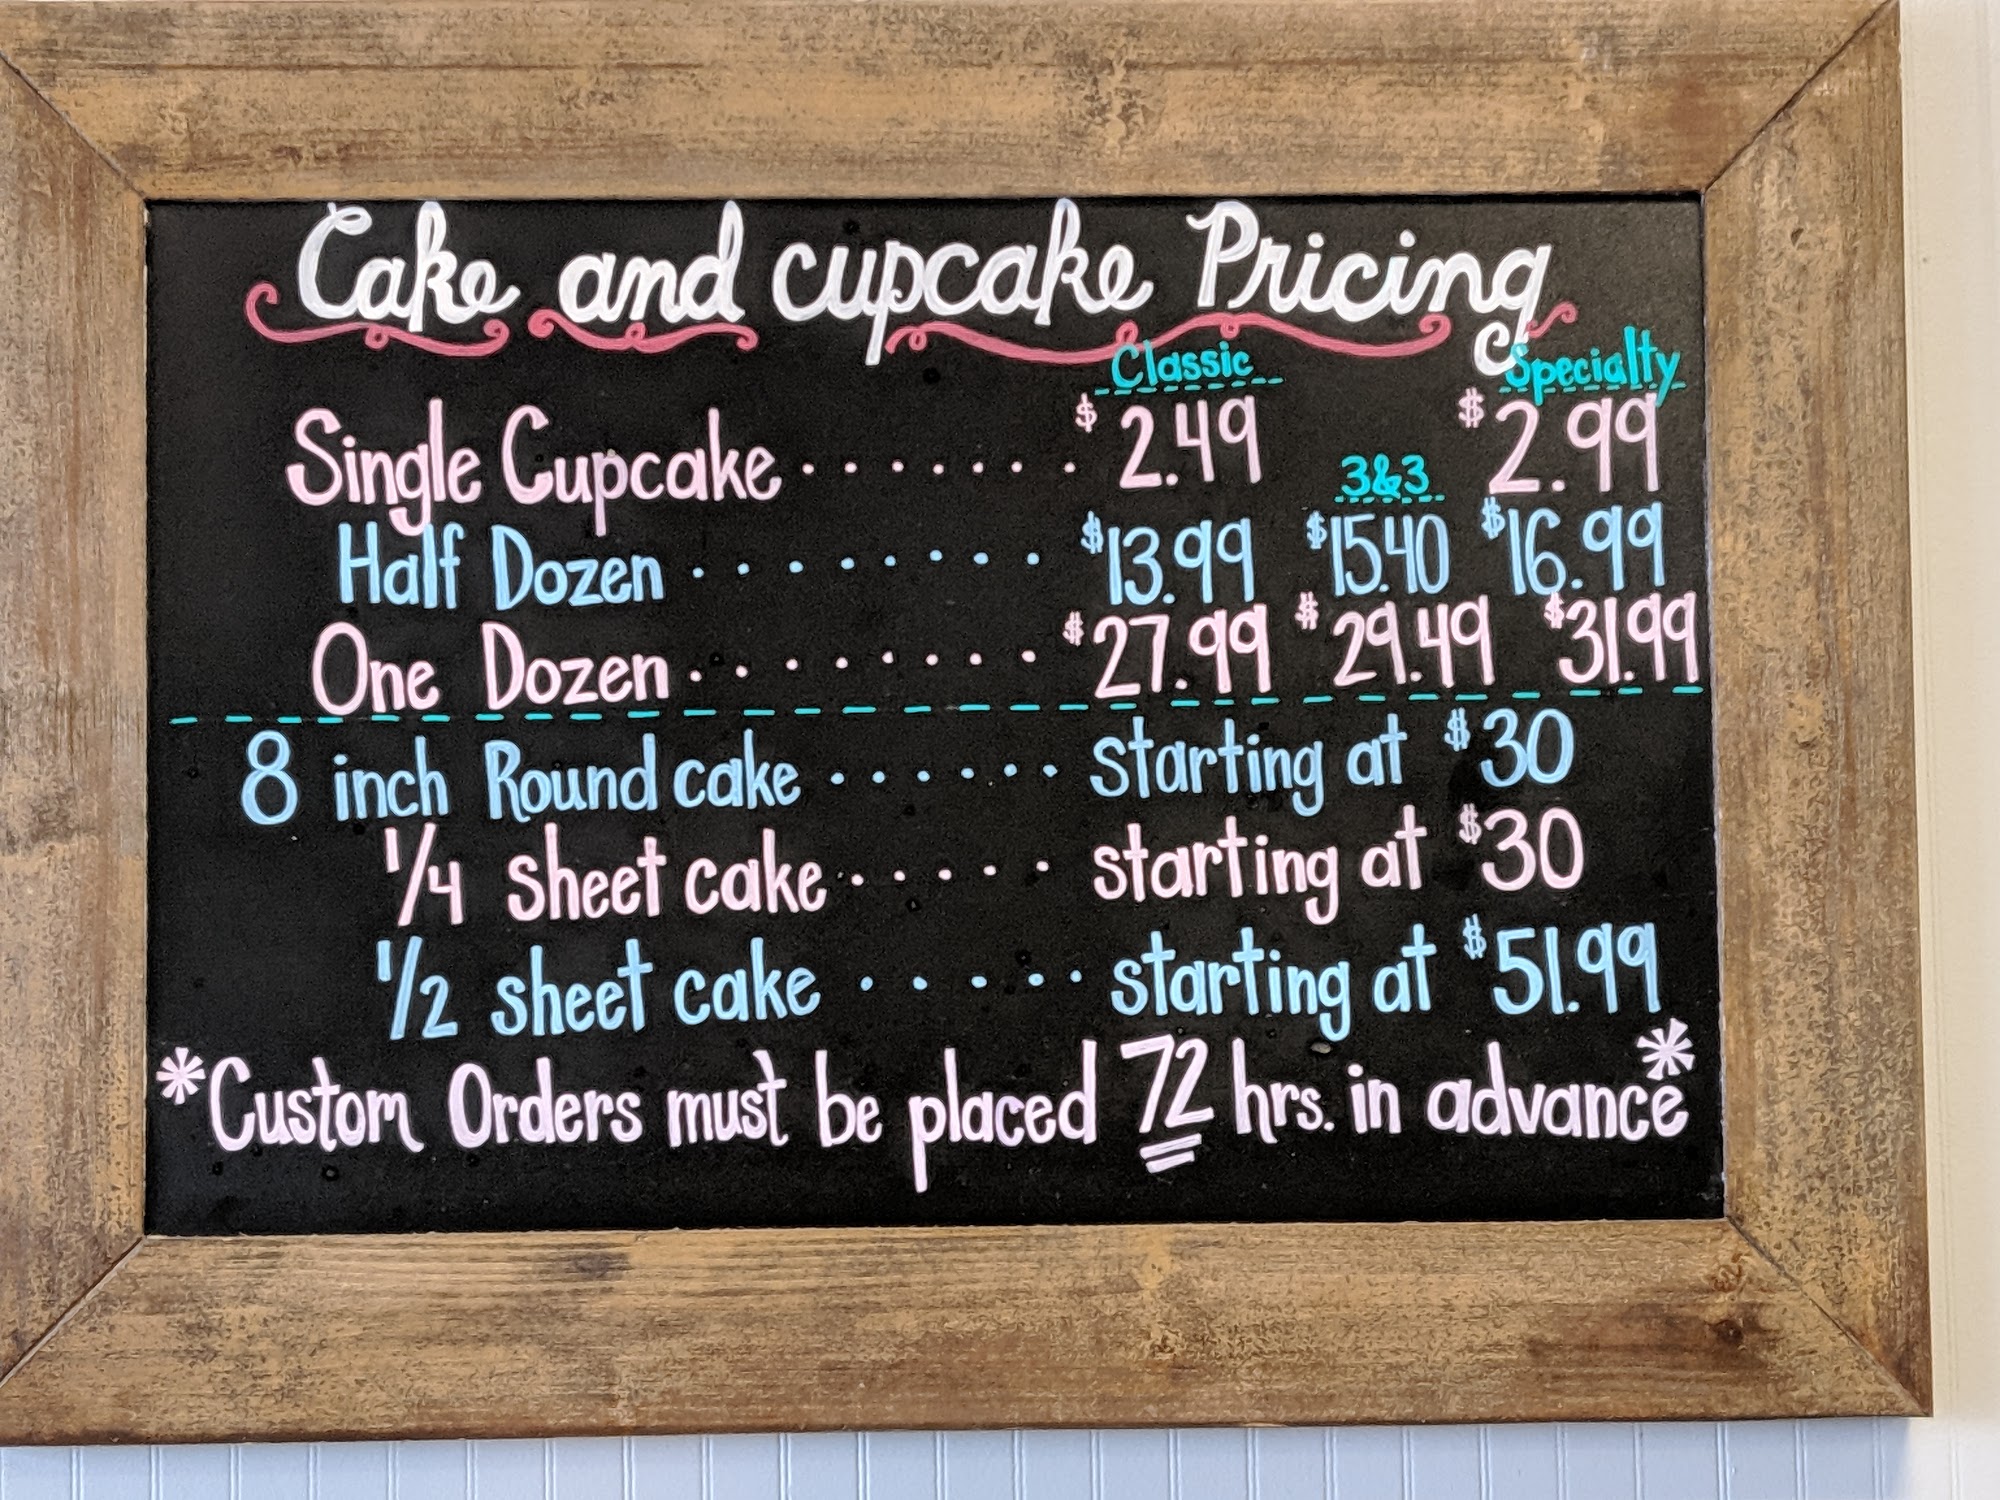 Cake and cupcake Pricing
Classic Specialty
Single Cupcake ....... $2.49 $2.99
3&3
Half Dozen ........ $13.99 $15.40 $16.99
One Dozen ........ $27.99 $29.49 $31.99
8 inch Round cake ...... starting at $30
1/4 sheet cake ..... starting at $30
1/2 sheet cake ..... starting at $51.99
*Custom Orders must be placed 72 hrs. in advance*